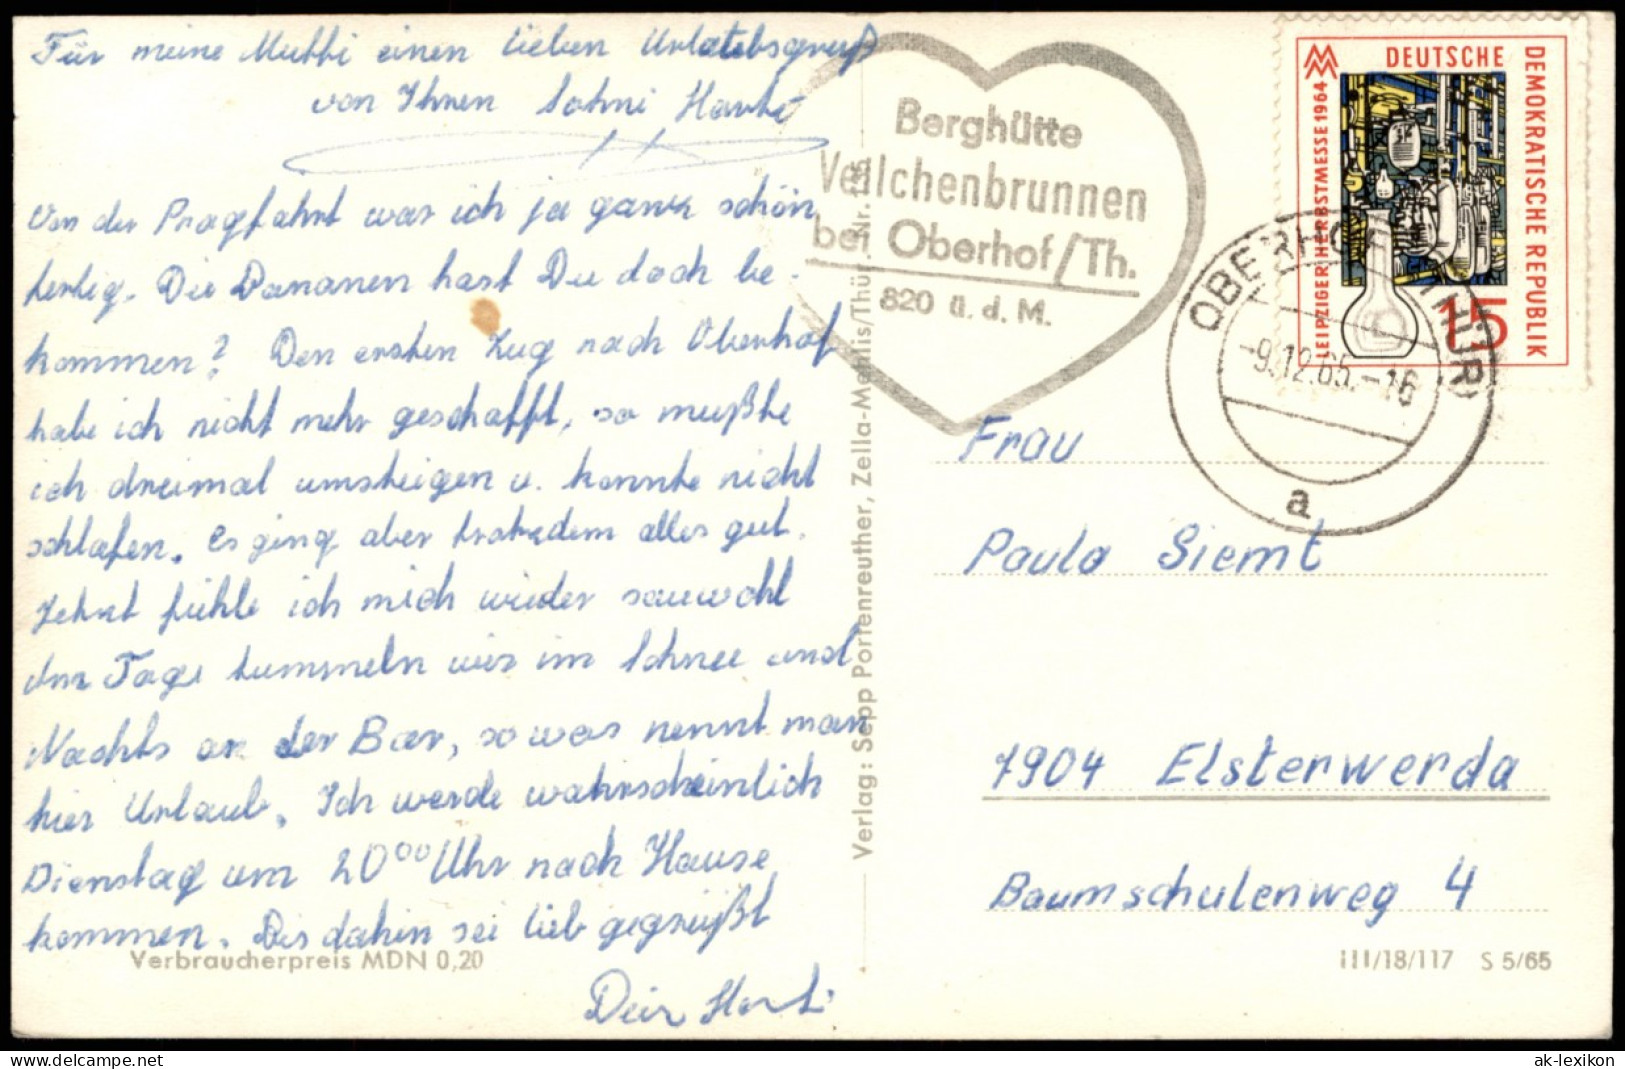 Für meine Mutti einen lieben Urlaubsgruß
von Ihren Sohni
Von der Pragfahrt war ich ja ganz schön
fertig. Die Bananen hast Du doch be-
kommen? Den ersten Zug nach Oberhof
habe ich nicht mehr geschafft, so mußte
ich dreimal umsteigen u. konnte nicht
schlafen. Es ging aber trotzdem alles gut.
Jetzt fühle ich mich wieder sauwohl
Am Tage tummeln wir im Schnee und
Nachts an der Bar, so was nennt man
hier Urlaub. Ich werde wahrscheinlich
Dienstag um 20⁰⁰ Uhr nach Hause
kommen. Bis dahin sei lieb gegrüßt
Dein
Verbraucherpreis MDN 0,20
Verlag: Sepp Portenreuther, Zella-Mehlis/Thür.
Berghütte
Veilchenbrunnen
bei Oberhof/Th.
820 ü. d. M.
DEUTSCHE
DEMOKRATISCHE REPUBLIK
LEIPZIGER HERBSTMESSE 1964
15
OBERHOF (THÜR)
-9.12.65.-16
a
Frau
Paula Siemt
7904 Elsterwerda
Baumschulenweg 4
III/18/117 S 5/65
ak-lexikon.com